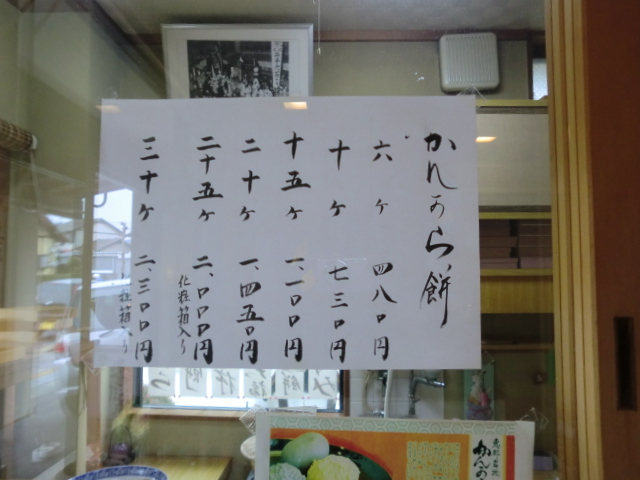 かんのら餅
六ヶ 四八〇円
十ヶ 七三〇円
十五ヶ 一、一〇〇円
二十ヶ 一、四五〇円
二十五ヶ 二、〇〇〇円
化粧箱入り
三十ヶ 二、三〇〇円
化粧箱入り